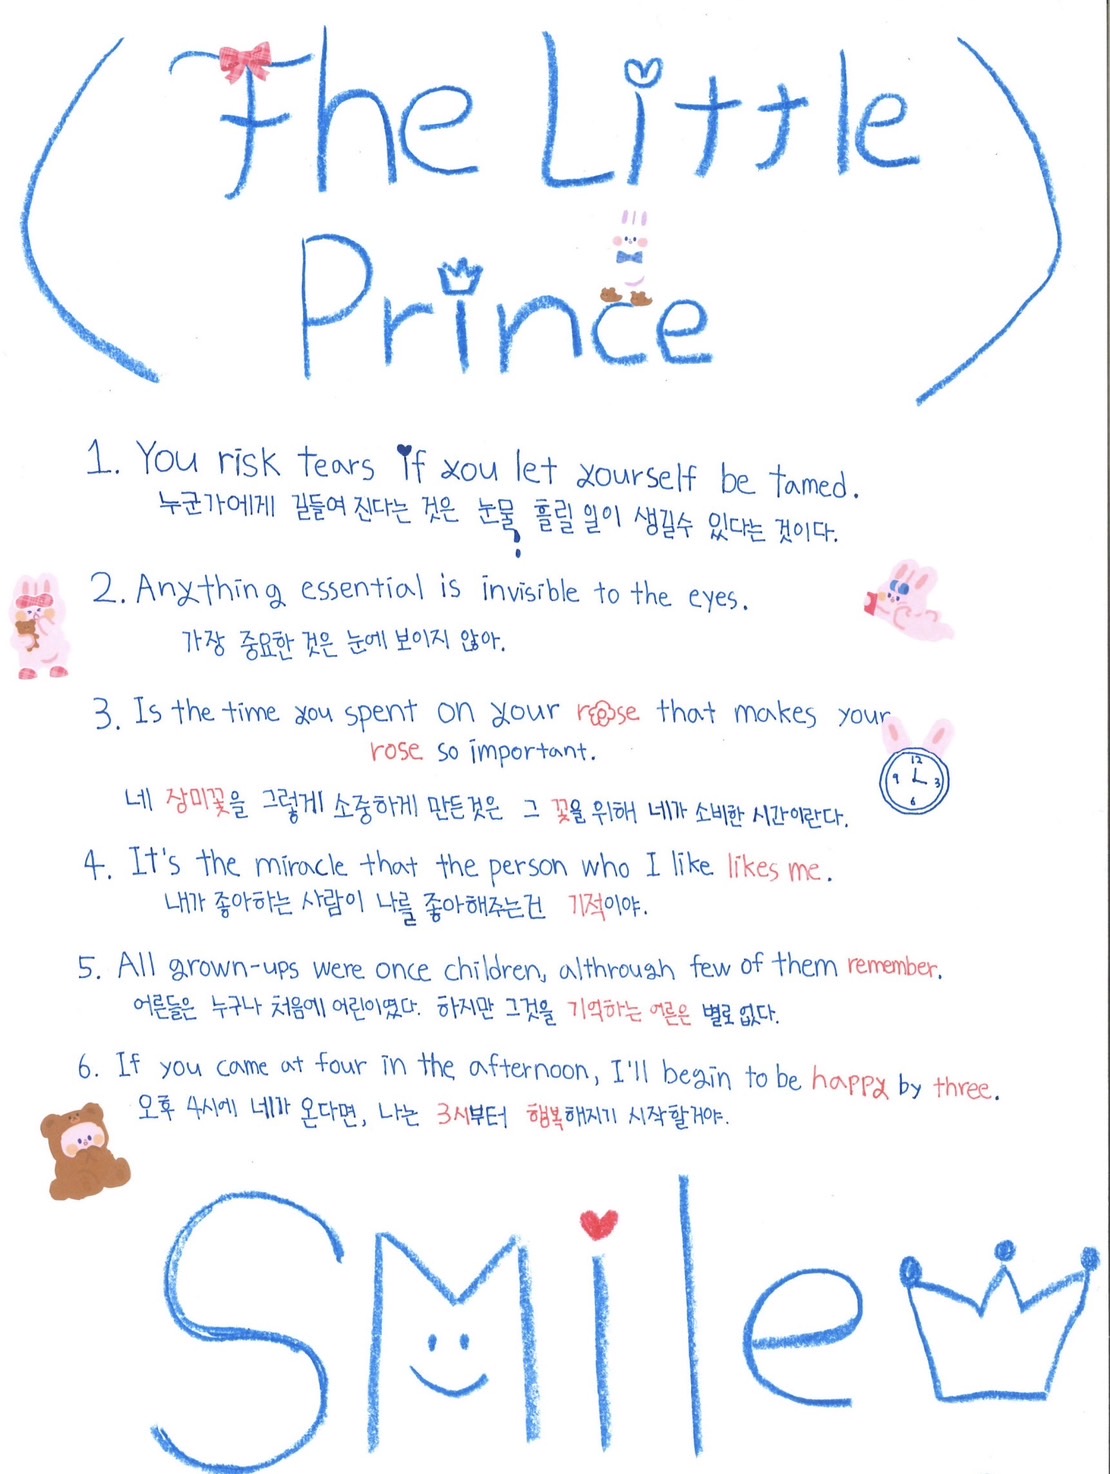 The Little
Prince
1. You risk tears if you let yourself be tamed.
누군가에게 길들여 진다는 것은 눈물 흘릴 일이 생길수 있다는 것이다.
2. Anything essential is invisible to the eyes.
가장 중요한 것은 눈에 보이지 않아.
3. Is the time you spent on your rose that makes your
rose so important.
12
9 3
6
네 장미꽃을 그렇게 소중하게 만든것은 그 꽃을 위해 네가 소비한 시간이란다.
4. It's the miracle that the person who I like likes me.
내가 좋아하는 사람이 나를 좋아해주는건 기적이야.
5. All grown-ups were once children, althrough few of them remember.
어른들은 누구나 처음에 어린이였다. 하지만 그것을 기억하는 어른은 별로 없다.
6. If you came at four in the afternoon, I'll begin to be happy by three.
오후 4시에 네가 온다면, 나는 3시부터 행복해지기 시작할거야.
SMile